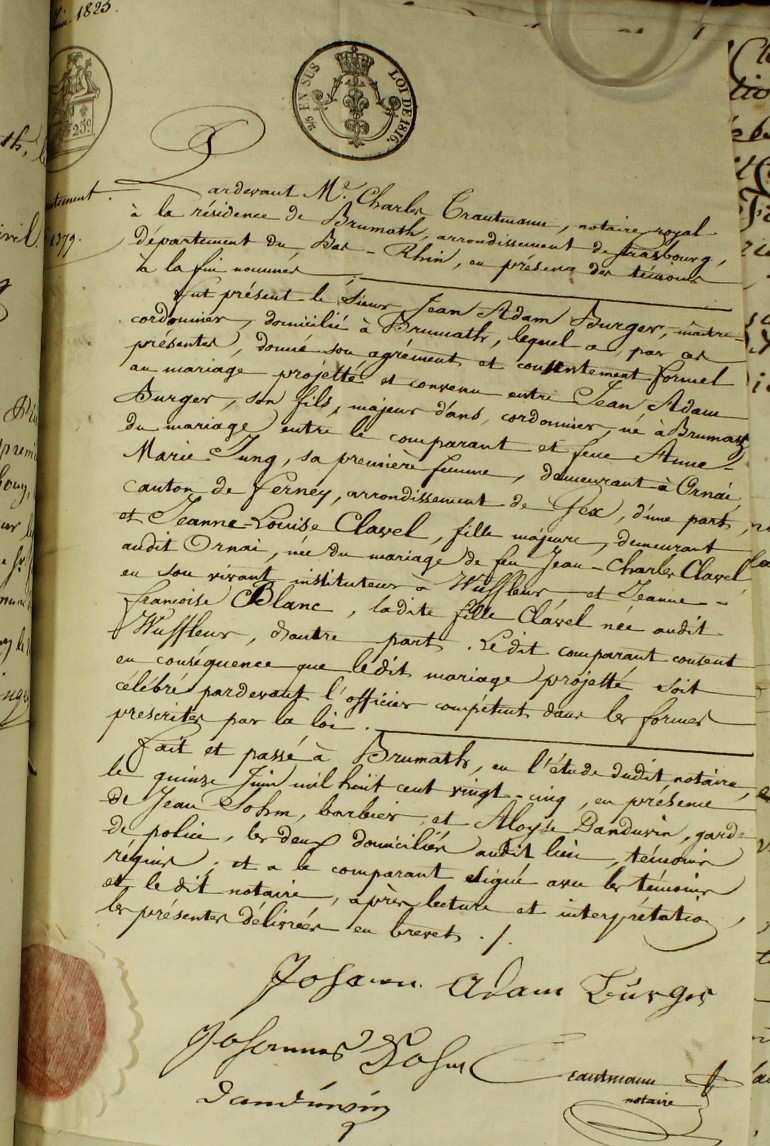 1825.
25c
25 EN SUS LOI DE 1816.
Pardevant Me. Charles Trautmann, notaire royal
à la résidence de Brumath, arrondissement de Strasbourg,
département du Bas-Rhin, en présence des témoins
à la fin nommés.
1379.
Fut présent le Sieur Jean Adam Burger, maître-
cordonnier, domicilié à Brumath, lequel a, par ces
présentes, donné son agrément et consentement formel
au mariage projetté et convenu entre Jean Adam
Burger, son fils, majeur d'ans, cordonnier, né à Brumath
du mariage entre le comparant et feue Anne
Marie Jung, sa première femme, demeurant à Ornai,
canton de Ferney, arrondissement de Gex, d'une part,
et Jeanne-Louise Clavel, fille majeure, demeurant
audit Ornai, née du mariage de feu Jean-Charles Clavel
en son vivant instituteur à Wuffleur et Jeanne-
françoise Blanc, ladite fille Clavel née audit
Wuffleur, d'autre part. Ledit comparant consent
en conséquence que ledit mariage projetté soit
célébré pardevant l'officier compétent dans les formes
prescrites par la loi.
Fait et passé à Brumath, en l'étude dudit notaire,
le quinze Juin mil huit cent vingt-cinq, en présence
de Jean Dohm, barbier, et Aloyse Dandurin, garde
de police, les deux domiciliés audit lieu, témoins
requis; et a le comparant signé avec les témoins
et le dit notaire, après lecture et interprétation,
les présentes délivrées en brevet ./.
Johann Adam Burger
Johannes Dohm
Trautmann
notaire
Dandurin